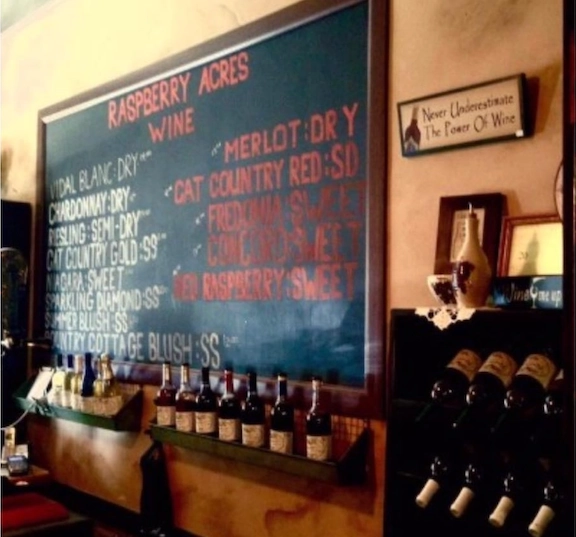 RASPBERRY ACRES
WINE
VIDAL BLANC:DRY
CHARDONNAY:DRY
RIESLING:SEMI-DRY
CAT COUNTRY GOLD:SS
NIAGARA:SWEET
SPARKLING DIAMOND:SS
SUMMER BLUSH:SS
COUNTRY COTTAGE BLUSH:SS
MERLOT:DRY
CAT COUNTRY RED:SD
FREDONIA:SWEET
CONCORD:SWEET
RED RASPBERRY:SWEET
Never Underestimate
The Power Of Wine
me up